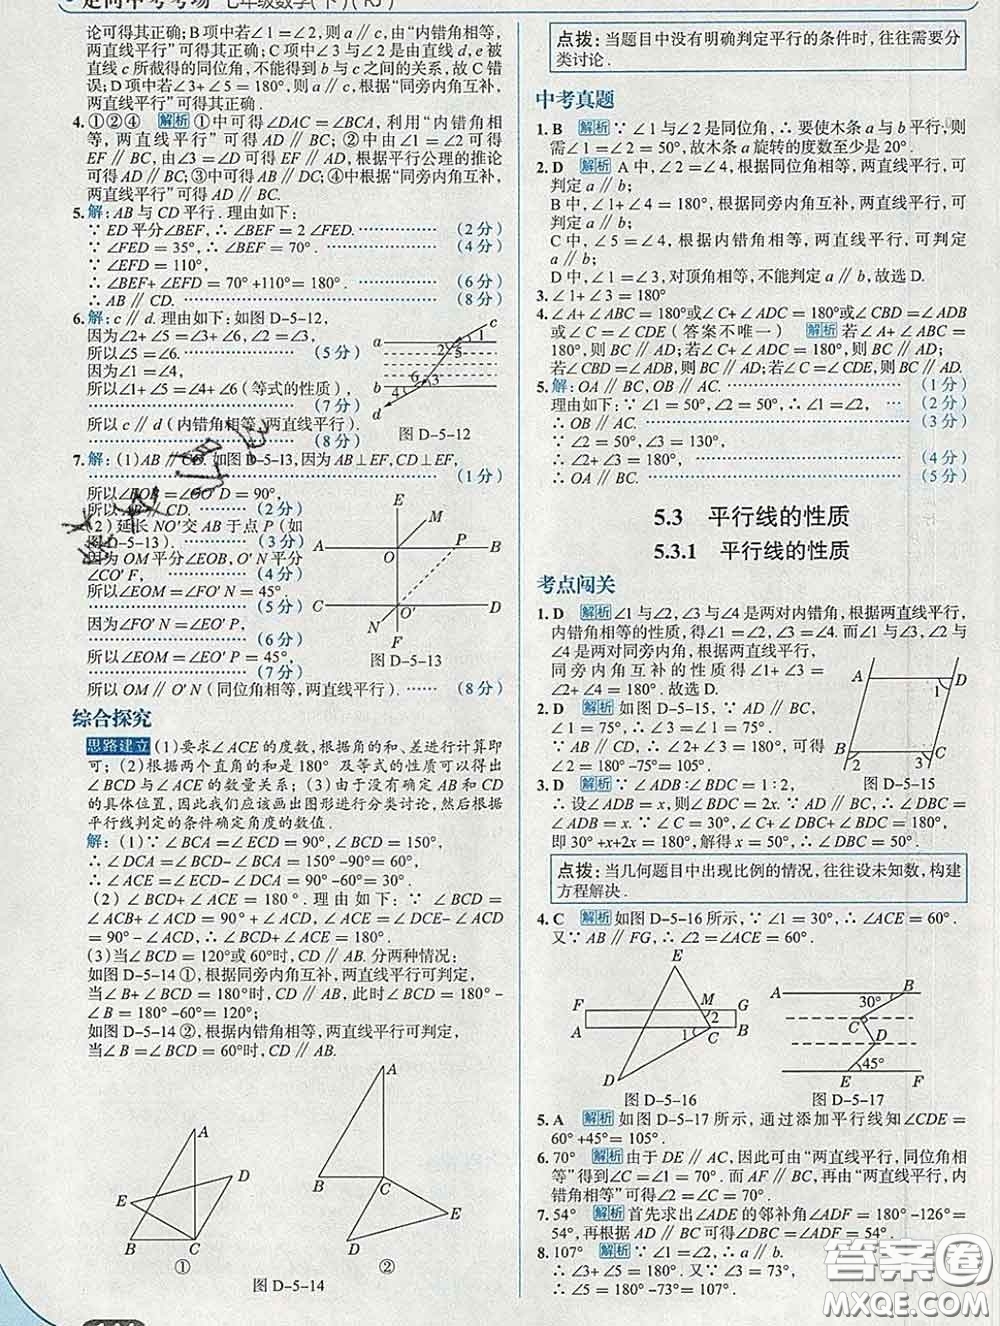 走向中考考场 七年级数学(下)(RJ)
论可得其正确;B项中若∠1=∠2,则a∥c,由“内错角相等,
两直线平行”可得其正确;C项中∠3=∠2是由直线d,e被
直线c所截得的同位角,不能得到b与c之间的关系,故C错
误;D项中若∠3+∠5=180°,则a∥c,根据“同旁内角互补,
两直线平行”可得其正确.
4.①②④ 解析 ①中可得∠DAC=∠BCA,利用“内错角相
等,两直线平行”可得AD∥BC;②中由∠2=∠1可得
EF∥BC,由∠3=∠D可得EF∥AD,根据平行公理的推论
可得AD∥BC;③中可得AB∥DC;④中根据“同旁内角互补,
两直线平行”可得AD∥BC.
5.解:AB与CD平行.理由如下:
∵ED平分∠BEF,∴∠BEF=2∠FED. (2分)
∵∠FED=35°,∴∠BEF=70°. (4分)
∵∠EFD=110°,
∴∠BEF+∠EFD=70°+110°=180°. (6分)
∴AB∥CD. (8分)
6.解:c∥d.理由如下:如图D-5-12,
因为∠2+∠5=∠3+∠6,∠2=∠3,
所以∠5=∠6. (5分)
因为∠1=∠4,
所以∠1+∠5=∠4+∠6(等式的性质).
(7分)
所以c∥d(内错角相等,两直线平行).
(8分)
a b c d 1 2 5 6 3 4
图D-5-12
7.解:(1)AB∥CD.如图D-5-13,因为AB⊥EF,CD⊥EF,
(1分)
所以∠EOB=∠OO′D=90°,
所以AB∥CD. (2分)
(2)延长NO′交AB于点P(如
图D-5-13). (3分)
因为OM平分∠EOB,O′N平分
∠CO′F, (4分)
所以∠EOM=∠FO′N=45°.
(5分)
因为∠FO′N=∠EO′P,
(6分)
所以∠EOM=∠EO′P=45°,
(7分)
所以OM∥O′N(同位角相等,两直线平行). (8分)
E M A O P B C O′ D N F
图D-5-13
综合探究
思路建立 (1)要求∠ACE的度数,根据角的和、差进行计算即
可;(2)根据两个直角的和是180°及等式的性质可以得出
∠BCD与∠ACE的数量关系;(3)由于没有确定AB和CD
的具体位置,因此我们应该画出图形进行分类讨论,然后根据
平行线判定的条件确定角度的数值.
解:(1)∵∠BCA=∠ECD=90°,∠BCD=150°,
∴∠DCA=∠BCD-∠BCA=150°-90°=60°,
∴∠ACE=∠ECD-∠DCA=90°-60°=30°.
(2)∠BCD+∠ACE=180°.理由如下:∵∠BCD=
∠ACB+∠ACD=90°+∠ACD,∠ACE=∠DCE-∠ACD
=90°-∠ACD,∴∠BCD+∠ACE=180°.
(3)当∠BCD=120°或60°时,CD∥AB.分两种情况:
如图D-5-14①,根据同旁内角互补,两直线平行可判定,
当∠B+∠BCD=180°时,CD∥AB,此时∠BCD=180°-
∠B=180°-60°=120°;
如图D-5-14②,根据内错角相等,两直线平行可判定,
当∠B=∠BCD=60°时,CD∥AB.
A D E B C ①
A B C E D ②
图D-5-14
点拨:当题目中没有明确判定平行的条件时,往往需要分
类讨论.
中考真题
1.B 解析 ∵∠1与∠2是同位角,∴要使木条a与b平行,则
需∠1=∠2=50°,故木条a旋转的度数至少是20°.
2.D 解析 A中,∠2=∠4,根据同位角相等,两直线平行,可
判定a∥b;
B中,∠1+∠4=180°,根据同旁内角互补,两直线平行,可
判定a∥b;
C中,∠5=∠4,根据内错角相等,两直线平行,可判定
a∥b;
D中,∠1=∠3,对顶角相等,不能判定a∥b,故选D.
3.∠1+∠3=180°
4.∠A+∠ABC=180°或∠C+∠ADC=180°或∠CBD=∠ADB
或∠C=∠CDE(答案不唯一) 解析 若∠A+∠ABC=
180°,则BC∥AD;若∠C+∠ADC=180°,则BC∥AD;若
∠CBD=∠ADB,则BC∥AD;若∠C=∠CDE,则BC∥AD.
5.解:OA∥BC,OB∥AC. (1分)
理由如下:∵∠1=50°,∠2=50°,∴∠1=∠2, (2分)
∴OB∥AC. (3分)
∵∠2=50°,∠3=130°,
∴∠2+∠3=180°, (4分)
∴OA∥BC. (5分)
5.3 平行线的性质
5.3.1 平行线的性质
考点闯关
1.D 解析 ∠1与∠2,∠3与∠4是两对内错角,根据两直线平行,
内错角相等的性质,得∠1=∠2,∠3=∠4.而∠1与∠3,∠2与
∠4是两对同旁内角,根据两直线平行,
同旁内角互补的性质得∠1+∠3=
∠2+∠4=180°.故选D.
2.D 解析 如图D-5-15,∵AD∥BC,
∠1=75°,∴∠3=∠1=75°,∵AB∥
CD,∴∠2=180°-∠3
=180°-75°=105°.
A D 1 B 2 3 C
图D-5-15
3.D 解析 ∵∠ADB:∠BDC=1:2,
∴设∠ADB=x,则∠BDC=2x.∵AD∥BC,∴∠DBC=
∠ADB=x.∵∠C=30°,∠C+∠DBC+∠BDC=180°,
即30°+x+2x=180°,解得x=50°,∴∠DBC=50°.
点拨:当几何题目中出现比例的情况,往往设未知数,构建
方程解决.
4.C 解析 如图D-5-16所示,∵∠1=30°,∴∠ACE=60°.
又∵AB∥FG,∴∠2=∠ACE=60°.
E F M G A 2 1 C B D
图D-5-16
A B 30° C D 45° E F
图D-5-17
5.A 解析 如图D-5-17所示,通过添加平行线知∠CDE=
60°+45°=105°.
6.70° 解析 由于DE∥AC,因此可由“两直线平行,同位角相
等”得到∠C=∠1=70°.而AF∥BC,再由“两直线平行,内
错角相等”可得∠2=∠C=70°.
7.54° 解析 首先求出∠ADE的邻补角∠ADF=180°-126°=
54°,再由DF∥BC可得∠DBC=∠ADF=54°.
8.107° 解析 ∵∠1=∠2,∴a∥b.
∴∠3+∠5=180°.又∵∠3=73°,
∴∠5=180°-73°=107°,
答案圈
MXQE.COM